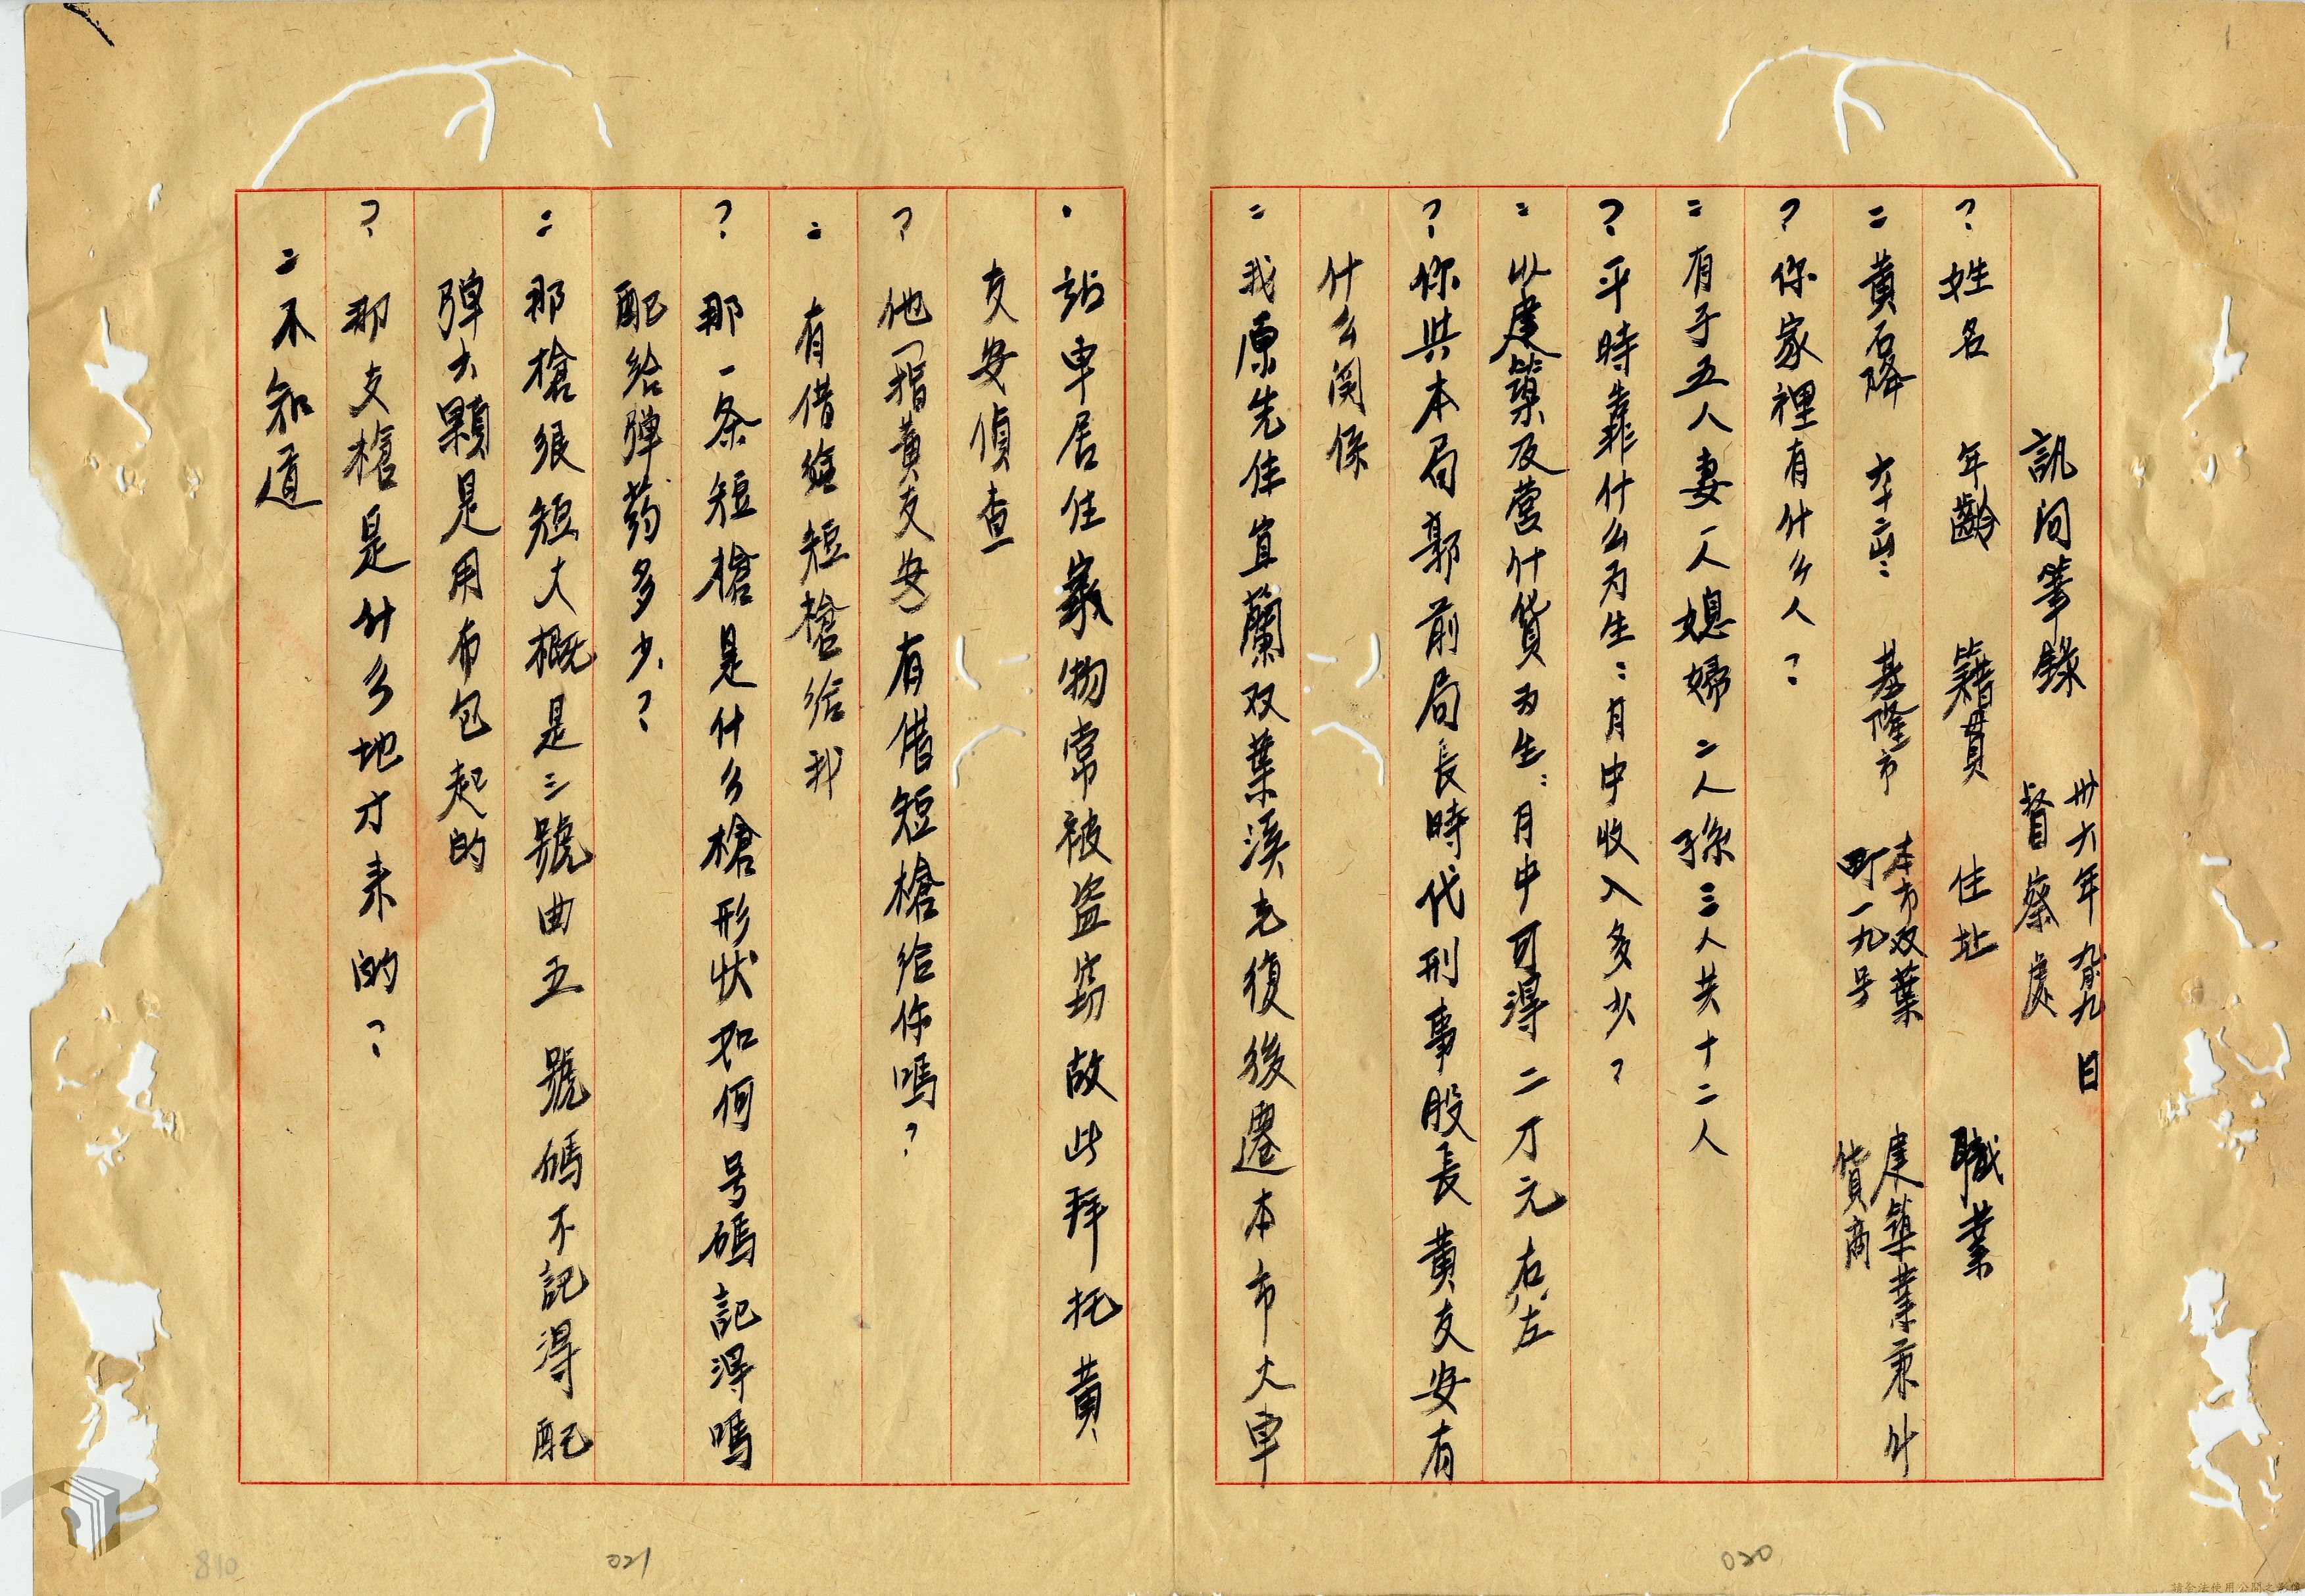 訊问筆錄 卅六年 九月九日
督察處
? 姓名 年齡 籍貫 住址 職業
= 黃石降 六十二歲 基隆市 本市双葉町一九号 建築業兼什貨商
? 你家裡有什么人?
= 有子五人妻一人媳婦二人孫三人共十二人
? 平時靠什么为生:月中收入多少?
= 以建築及营什貨为生:月中可得二万元右左
? 你共本局郭前局長時代刑事股長黃友安有
什么関係
= 我原先住宜蘭双葉溪光復後遷本市火車
站車居住 物常被盗窃故此拜托黃
友安偵查
? 他(指黃友安)有借短槍给你嗎?
= 有借 短槍给我
? 那一条短槍是什么槍形状如何号碼記得嗎
配给彈药多少?
= 那槍很短大概是三號曲五 號碼不記得配
彈六顆是用布包起的
? 那支槍是什么地方来的?
= 不知道
021
020